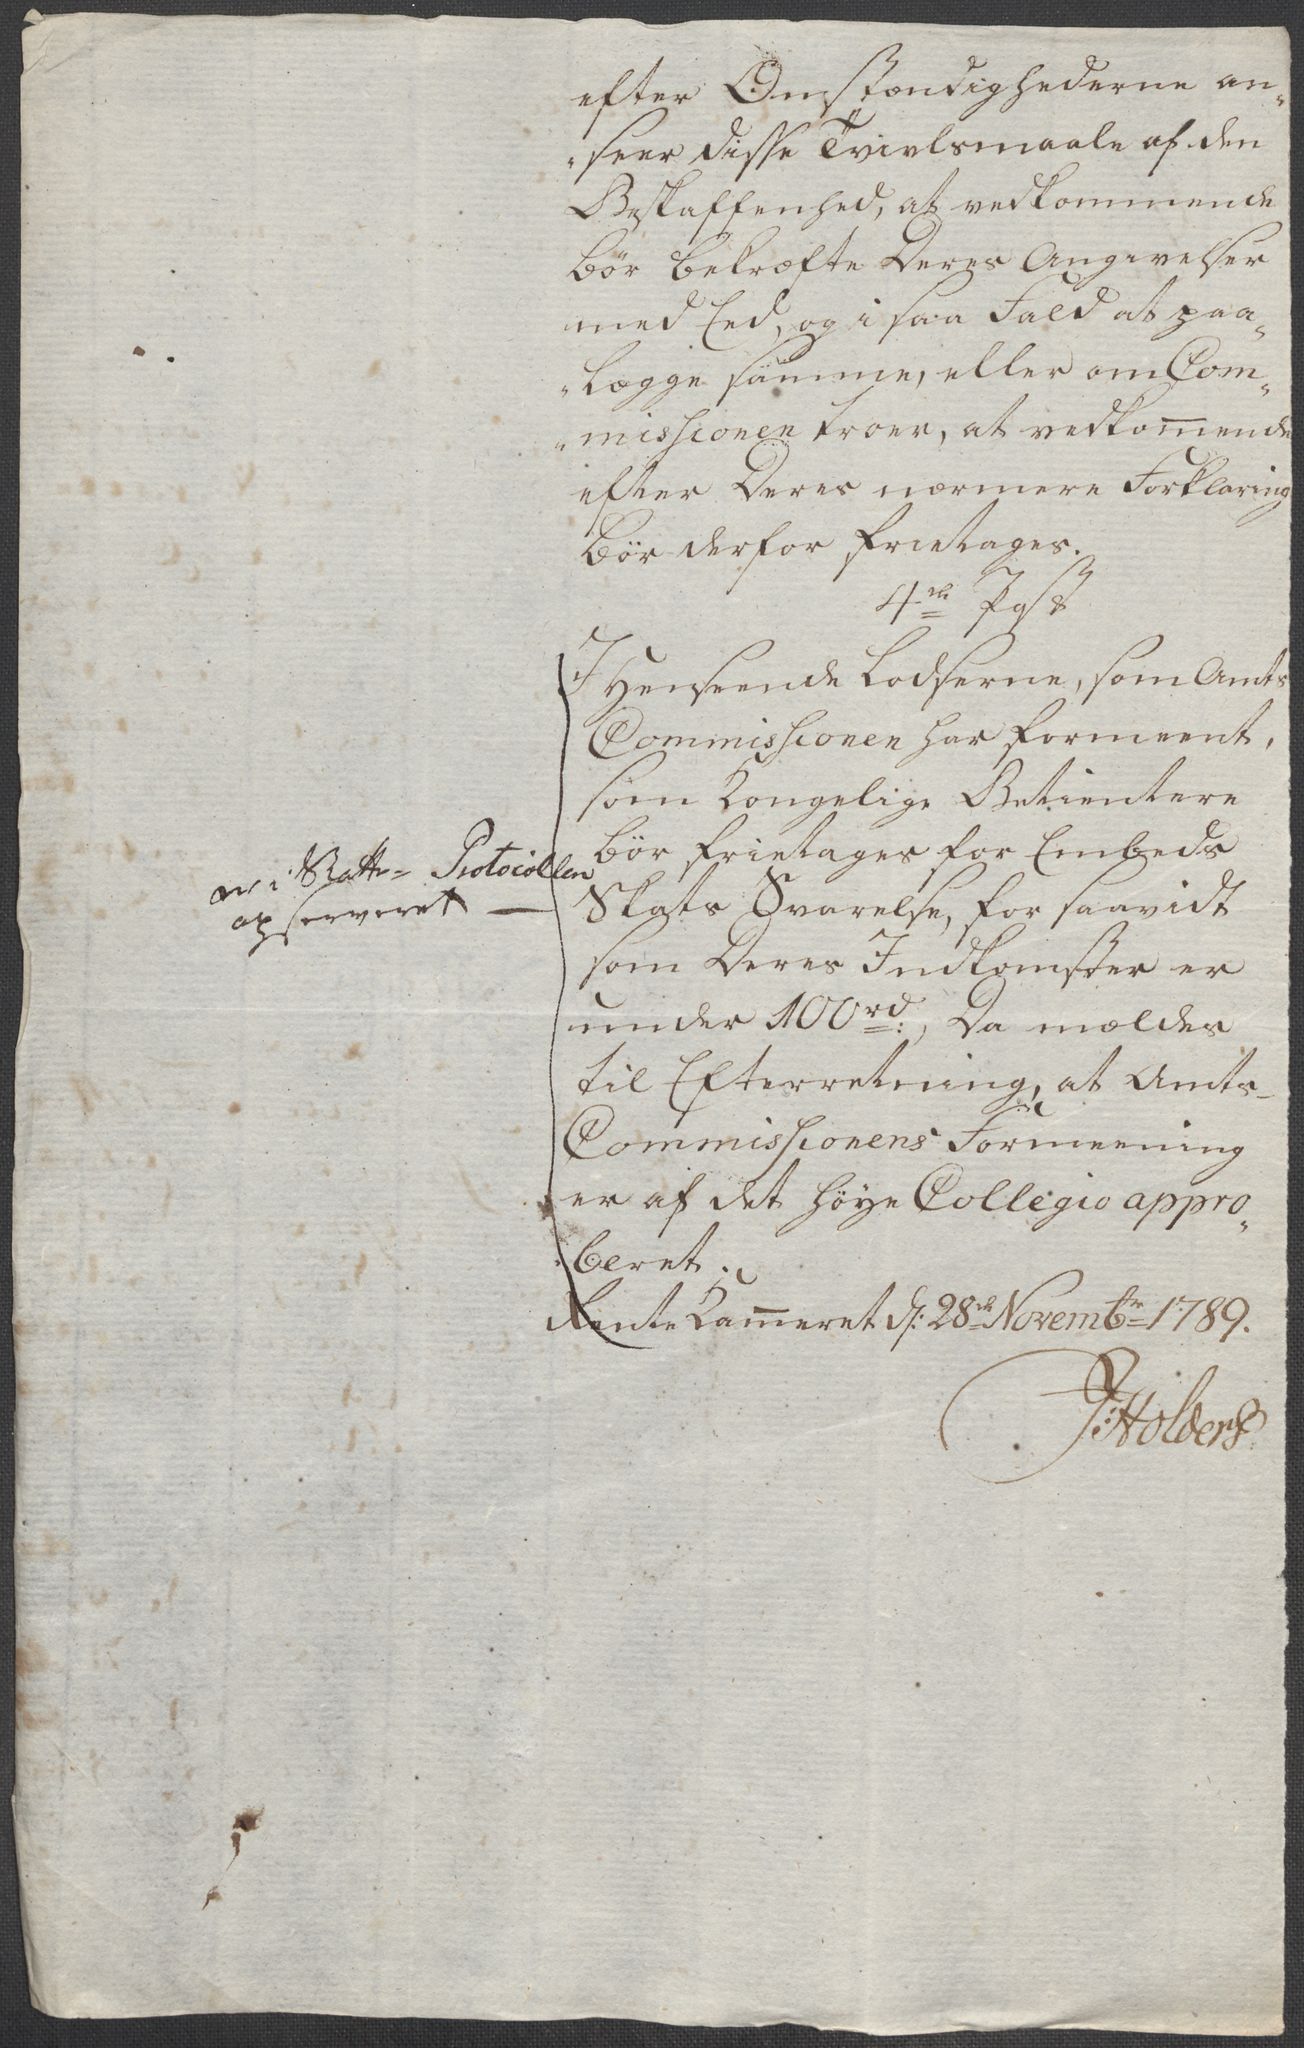 efter Omstændighederne an-
-seer disse Tvivlsmaale af den
Beskaffenhed, at vedkommende
bör bekræfte Deres Angivelser
med Eed, og i saa Fald at paa-
-lægge samme, eller om Com-
-missionen troer, at vedkom̅ende
efter Deres nærmere Forklaring
bör derfor frietages.
4de Post
I Henseende Lodserne, som Amts
Commissionen har formeent,
som Kongelige Betientere
bör frietages for Embeds
Skats Svarelse, for saavidt
som Deres Indkomster er
under 100rd:, Da meldes
til Efterretning, at Amts-
Commissionens Formeening
er af det höye Collegio appro-
-beret.
Rente Kam̅eret d: 28de Novembr 1789.
er i Skatte- Protocollen
opserveret —
J: Holders